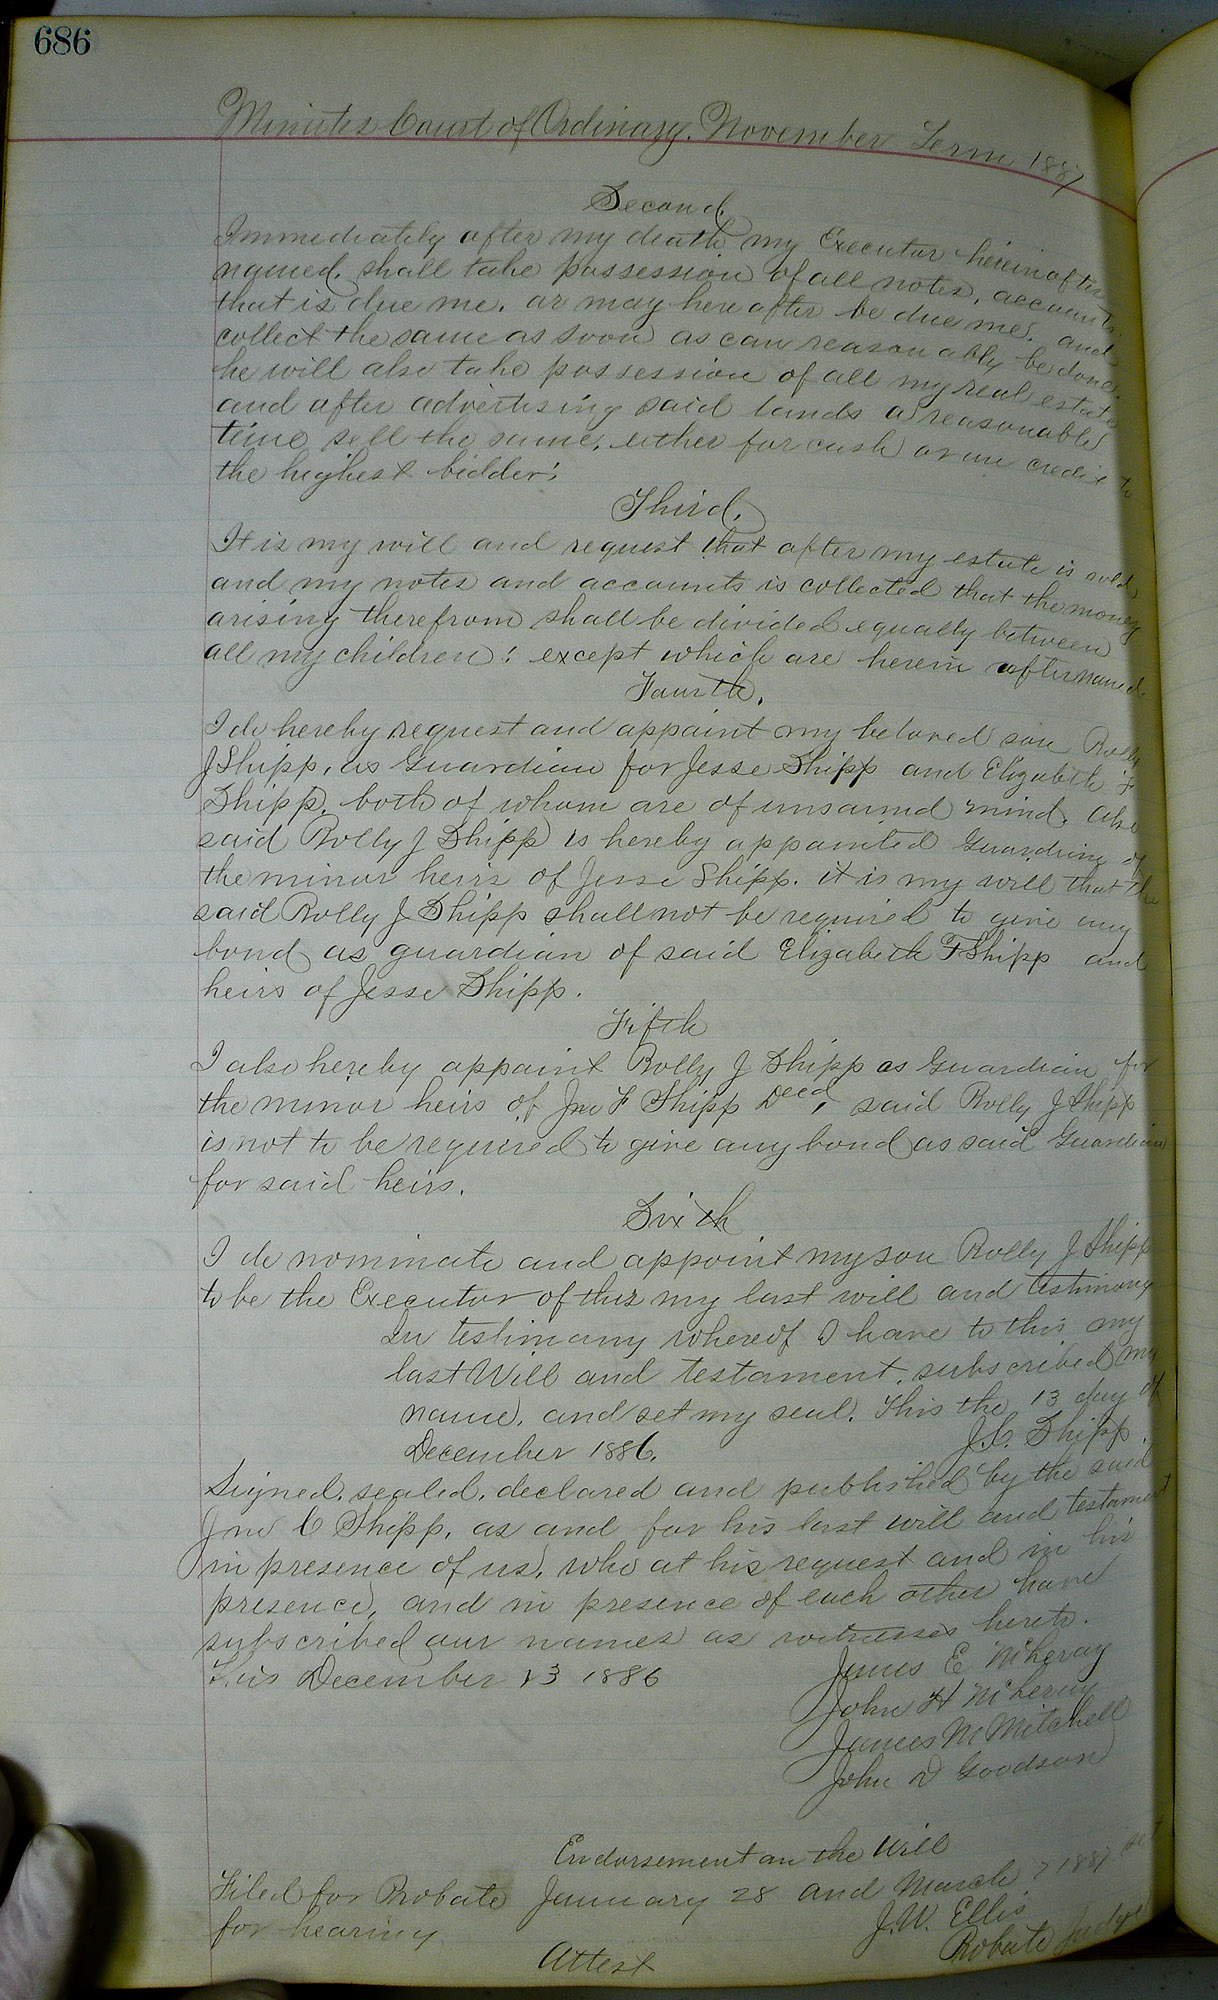 686
Minutes Court of Ordinary. November Term 1887
Second.
Immediately after my death my Executor hereinafter
named, shall take possession of all notes, accounts
that is due me, or may here after be due me, and
collect the same as soon as can reasonably be done,
he will also take possession of all my real estate
and after advertising said lands a reasonable
time sell the same, either for cash or on credit to
the highest bidder;
Third,
It is my will and request that after my estate is sold,
and my notes and accounts is collected that the money
arising therefrom shall be divided equally between
all my children: except which are herein afternamed.
Fourth.
I do hereby request and appoint my beloved son Rolly
J Shipp, as Guardian for Jesse Shipp and Elizabeth F
Shipp, both of whom are of unsound mind. Also
said Rolly J Shipp is hereby appointed Guardian of
the minor heirs of Jesse Shipp. it is my will that the
said Rolly J Shipp shall not be required to give any
bond as guardian of said Elizabeth F Shipp and
heirs of Jesse Shipp.
Fifth
I also hereby appoint Rolly J Shipp as Guardian for
the minor heirs of Jno F Shipp Decd, said Rolly J Shipp
is not to be required to give any bond as said Guardian
for said heirs.
Sixth
I do nominate and appoint my son Rolly J Shipp
to be the Executor of this my last will and testimony
In testimony whereof I have to this my
last Will and testament, subscribed my
name, and set my seal. This the 13 day of
December 1886.
J.C. Shipp.
Signed, sealed, declared and published by the said
Jno C Shipp, as and for his last will and testament
in presence of us, who at his request and in his
presence, and in presence of each other have
subscribed our names as witnesses hereto.
This December 13 1886
James E McLeroy
John H McLeroy
James M Mitchell
John D Goodson
Endorsement on the Will
Filed for Probate January 28 and March 7 1887 set
for hearing
J.W. Ellis
Probate Judge
Attest